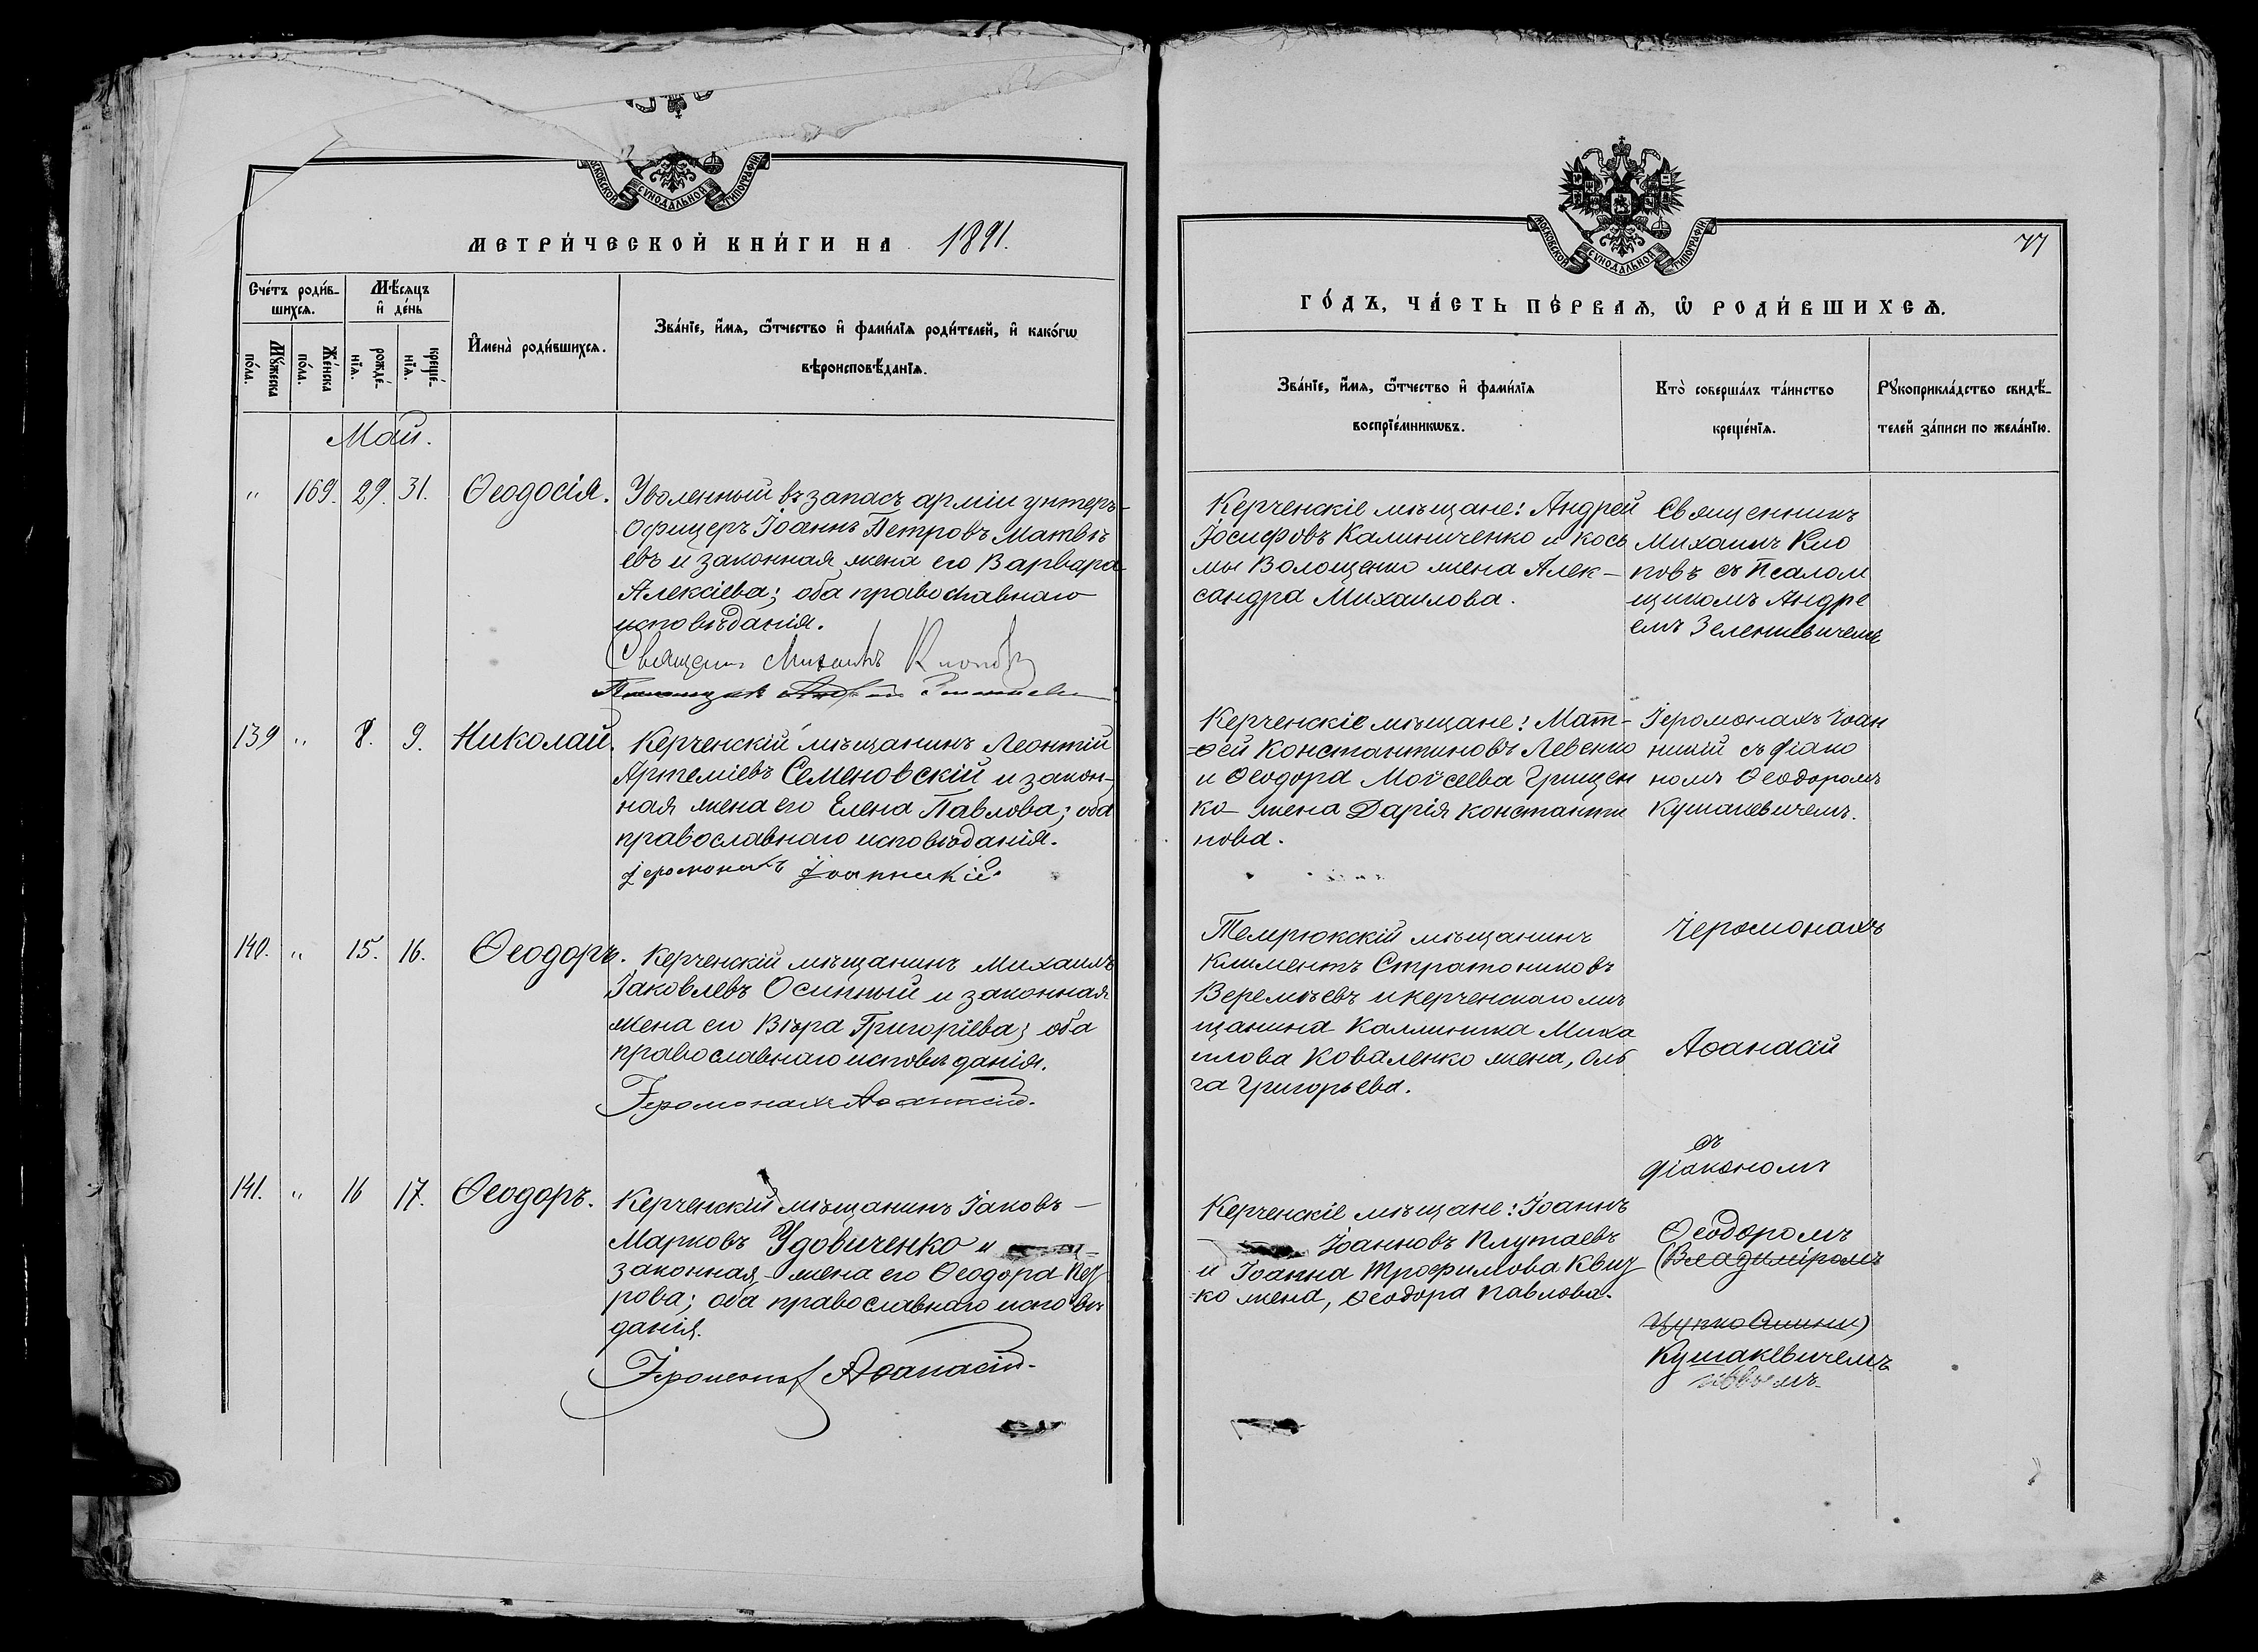 МОСКОВСКОЙ СѴНОДАЛЬНОЙ ТИПОГРАФІИ
МЕТРИ́ЧЕСКОЙ КНИ́ГИ НА 1891.
Сче́тъ роди́в-
шихсѧ.
Мѣ́сѧцъ
и҆ де́нь
Мꙋ́жеска
по́ла.
Же́нска
по́ла.
рожде́-
нїѧ.
креще́-
нїѧ.
И҆мена̀ роди́вшихсѧ.
Зва́нїе, и҆́мѧ, ѻ҆́тчество и҆ фами́лїѧ роди́телей, и҆ како́гѡ
вѣроисповѣ́данїѧ.
Май.
" 169. 29. 31. Ѳеодосія.
Уволенный въ запасъ арміи унтеръ-
офицеръ Іоаннъ Петровъ Матвѣ
евъ и законная жена его Варвара
Алексіева; оба православнаго
исповѣданія.
Священ. Михаилъ Клоповъ
139 " 8. 9. Николай.
Керченскій мѣщанинъ Леонтій
Артеміевъ Семеновскій и закон-
ная жена его Елена Павлова; оба
православнаго исповѣданія.
Іеромонахъ Іоанникій.
140. " 15. 16. Ѳеодоръ.
Керченскій мѣщанинъ Михаилъ
Іаковлевъ Осипный и законная
жена его Вѣра Григоріева; оба
православнаго исповѣданія.
Іеромонахъ Аѳанасій.
141. " 16 17. Ѳеодоръ.
Керченскій мѣщанинъ Іаковъ —
Марковъ Удовиченко и
законная жена его Ѳеодора Пет
рова; оба православнаго исповѣ
данія.
Іеромонахъ Аѳанасій.
МОСКОВСКОЙ СѴНОДАЛЬНОЙ ТИПОГРАФІИ
77
ГО́ДЪ, ЧА́СТЬ ПЕ́РВАѦ, Ѡ҆ РОДИ́ВШИХСѦ.
Зва́нїе, и҆́мѧ, ѻ҆́тчество и҆ фами́лїѧ
воспрїе́мникѡвъ.
Кто̀ соверша́лъ та́инство
креще́нїѧ.
Рꙋкоприкла́дство свидѣ́-
телей за́писи по жела́нїю.
Керченскіе мѣщане: Андрей
Іосифовъ Калиниченко и Кось
мы Волощенко жена Алек-
сандра Михаилова.
Священникъ
Михаилъ Кло
повъ съ псалом
щикомъ Андре
емъ Зеленкевичемъ
Керченскіе мѣщане: Мат-
ѳей Константиновъ Левенко
и Ѳеодора Мойсеева Грищен
ко жена Дарія Константи
нова.
Іеромонахъ Іоан
никій съ діако
номъ Ѳеодоромъ
Кушакевичемъ.
Темрюкскій мѣщанинъ
Климентъ Стратониковъ
Веремѣевъ и керченскаго мѣ
щанина Каллиника Миха
илова Коваленко жена, Оль
га Григорьева.
Іеромонахъ
Аѳанасій
съ
діакономъ
Керченскіе мѣщане: Іоаннъ
Іоанновъ Плутаевъ
и Іоанна Трофимова Квит
ко жена, Ѳеодора Павлова.
Ѳеодоромъ
(Владиміромъ
Кушакевичемъ